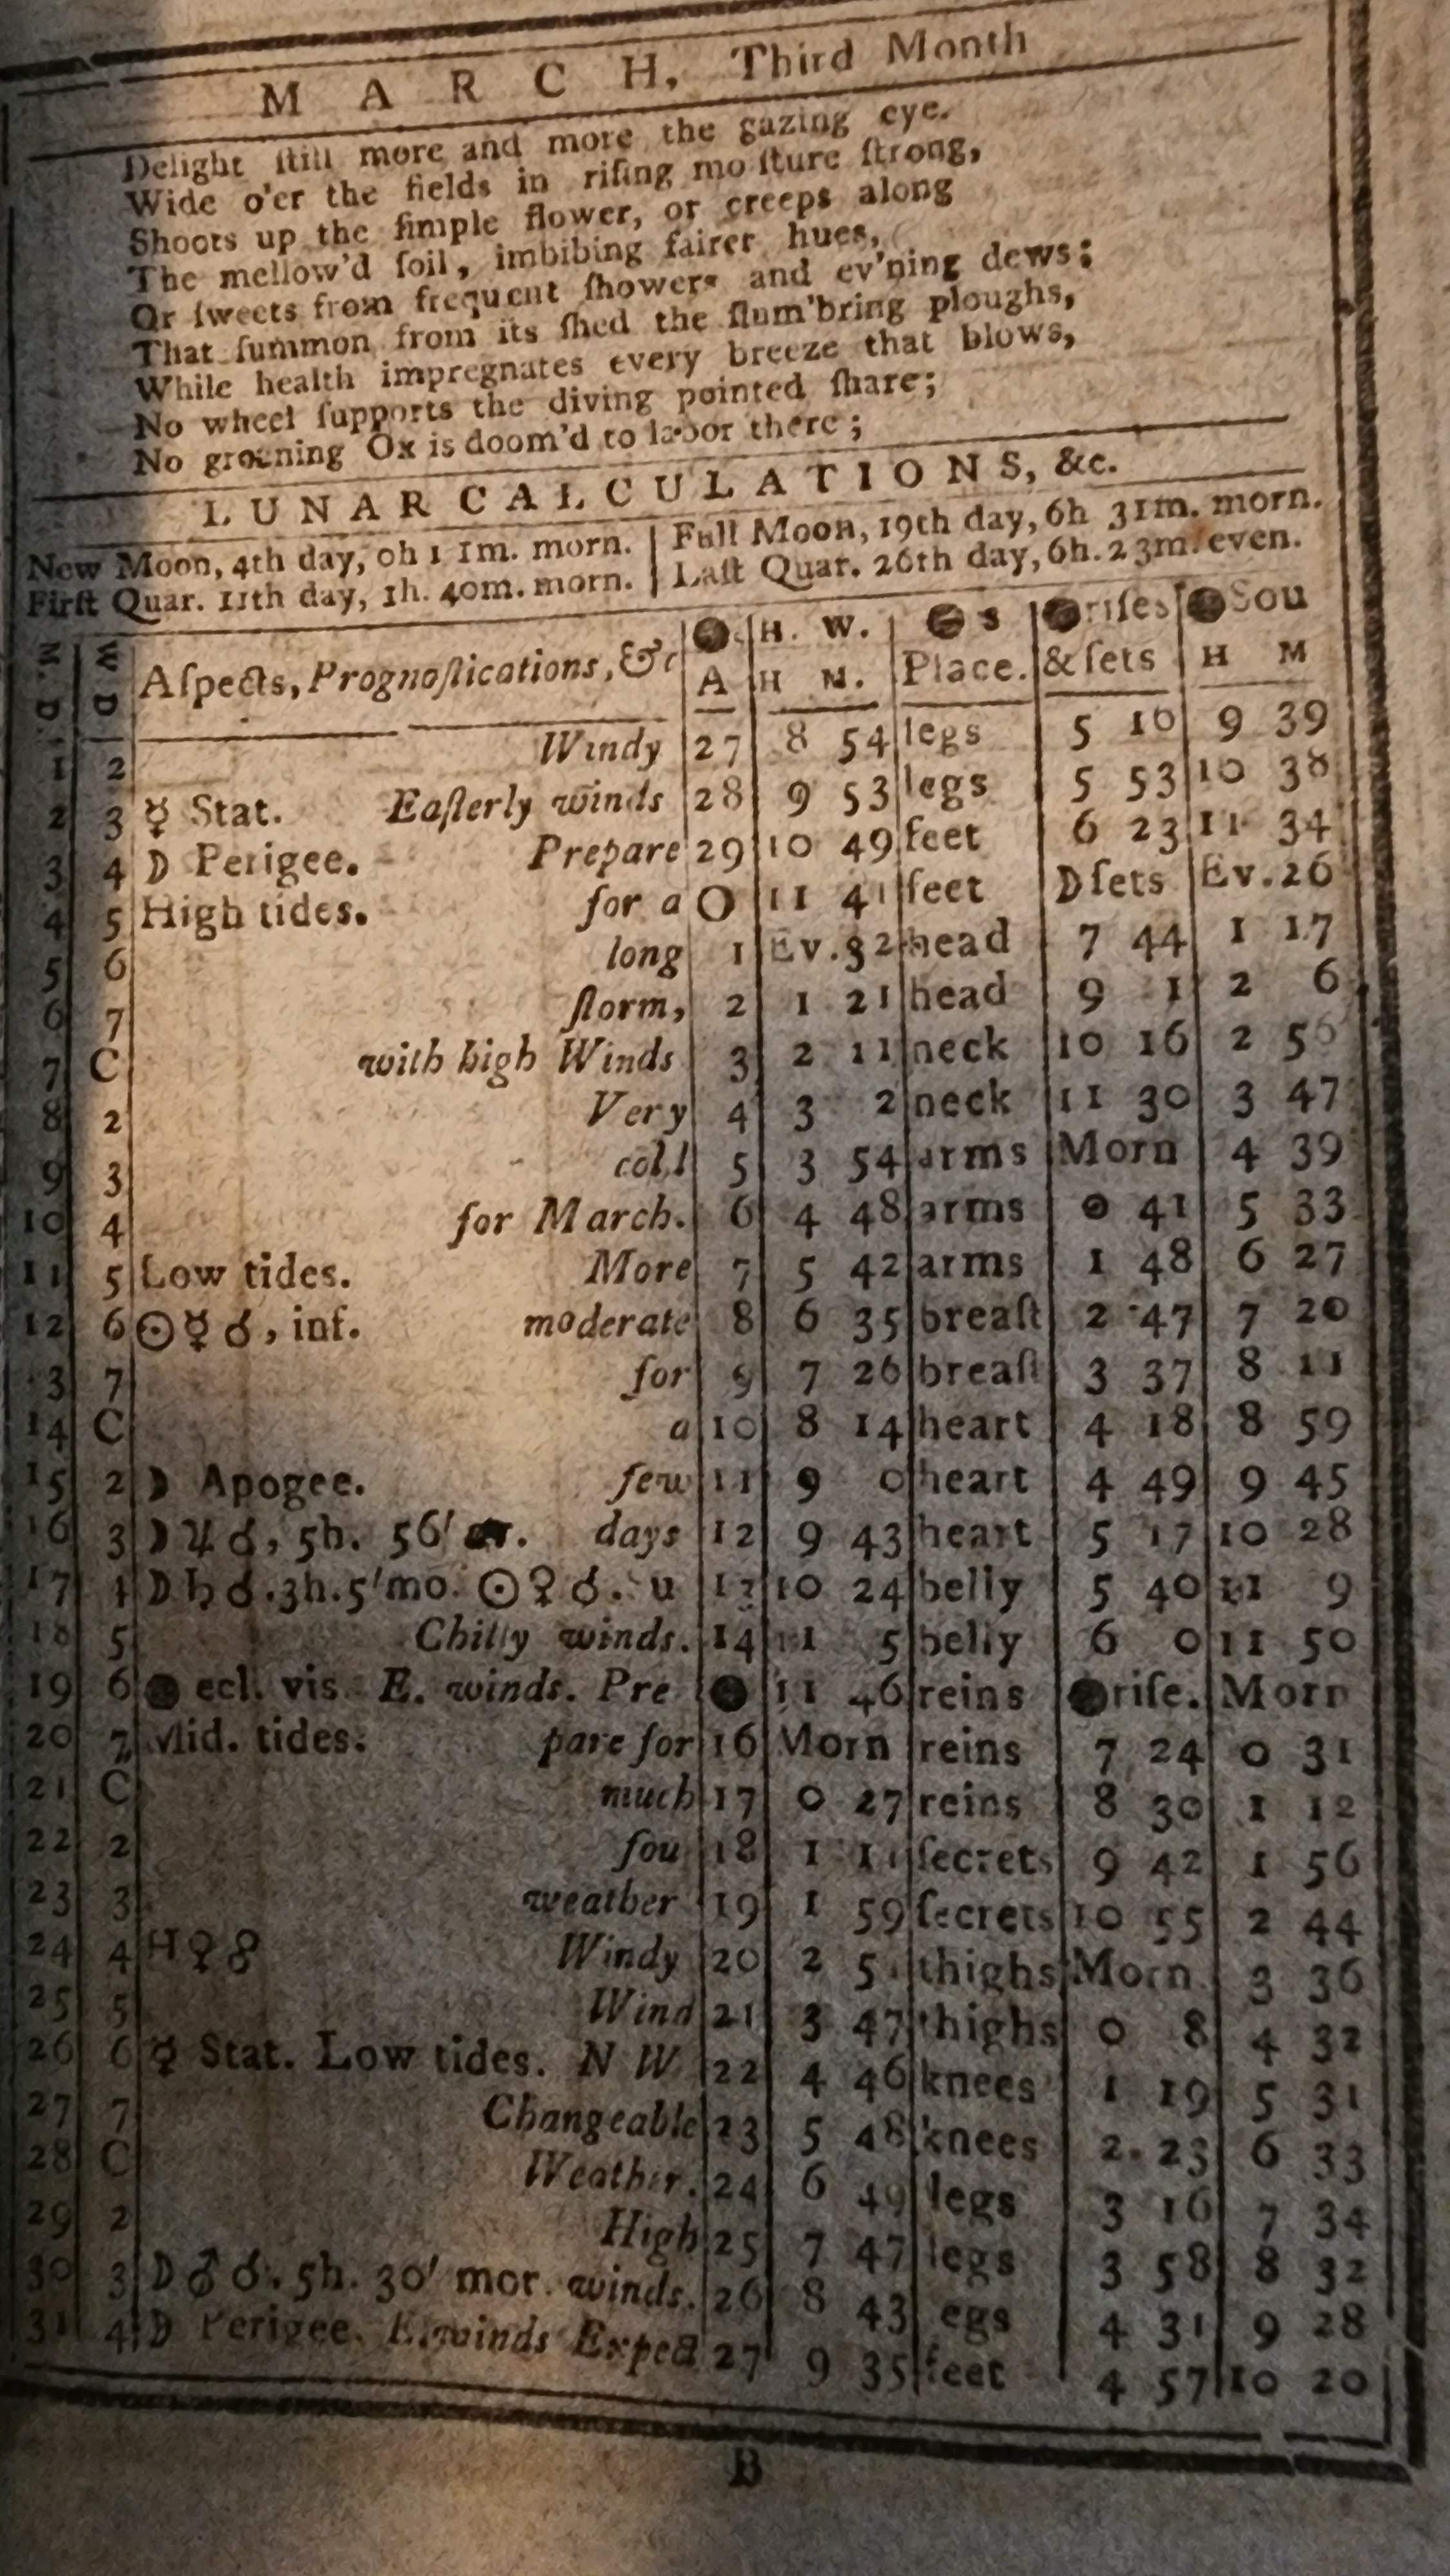 MARCH, Third Month
Delight ſtill more and more the gazing eye.
Wide o'er the fields in riſing mo ſture ſtrong,
Shoots up the ſimple flower, or creeps along
The mellow'd ſoil, imbibing fairer hues,
Or ſweets from frequent ſhowers and ev'ning dews;
That ſummon from its ſhed the ſlum'bring ploughs,
While health impregnates every breeze that blows,
No wheel ſupports the diving pointed ſhare;
No groaning Ox is doom'd to labor there;
LUNAR CALCULATIONS, &c.
New Moon, 4th day, 0h 1 1m. morn. | Full Moon, 19th day, 6h 31m. morn.
Firſt Quar. 11th day, 1h. 40m. morn. | Laſt Quar. 26th day, 6h. 23m. even.
M. D. W D Aſpects, Prognoſtications, &c ●. H. W. ●s ●riſes ●Sou
A H M. Place. & ſets H M
1 2 Windy 27 8 54 legs 5 10 9 39
2 3 ☿ Stat. Eaſterly winds 28 9 53 legs 5 53 10 38
3 4 ☽ Perigee. Prepare 29 10 49 feet 6 23 11 34
4 5 High tides. for a O 11 41 feet ☽ ſets Ev. 26
5 6 long 1 Ev. 32 head 7 44 1 17
6 7 ſtorm, 2 1 21 head 9 1 2 6
7 C with high Winds 3 2 11 neck 10 16 2 56
8 2 Very 4 3 2 neck 11 30 3 47
9 3 cold 5 3 54 arms Morn 4 39
10 4 for March. 6 4 48 arms 0 41 5 33
11 5 Low tides. More 7 5 42 arms 1 48 6 27
12 6 ☉ ☿ ☌, inf. moderate 8 6 35 breaſt 2 47 7 20
13 7 for 9 7 26 breaſt 3 37 8 11
14 C a 10 8 14 heart 4 18 8 59
15 2 ☽ Apogee. few 11 9 0 heart 4 49 9 45
16 3 ☽ ♃ ☌, 5h. 56' days 12 9 43 heart 5 17 10 28
17 4 ☽ ♄ ☌. 3h. 5' mo. ☉ ♀ ☌. 13 10 24 belly 5 40 11 9
18 5 Chilly winds. 14 11 5 belly 6 0 11 50
19 6 ● ecl. vis. E. winds. Pre ● 11 46 reins ●riſe. Morn
20 7 Mid. tides. pare for 16 Morn reins 7 24 0 31
21 C much 17 0 27 reins 8 30 1 12
22 2 fou 18 1 11 ſecrets 9 42 1 56
23 3 weather 19 1 59 ſecrets 10 55 2 44
24 4 H ♀ ☍ Windy 20 2 thighs Morn 3 36
25 5 Wind 21 3 47 thighs 0 8 4 32
26 6 ☿ Stat. Low tides. N W 22 4 46 knees 1 19 5 31
27 7 Changeable 23 5 48 knees 2 23 6 33
28 C Weather. 24 6 49 legs 3 16 7 34
29 2 High 25 7 47 legs 3 58 8 32
30 3 ☽ ♂ ☌. 5h. 30' mor. winds. 26 8 43 legs 4 31 9 28
31 4 ☽ Perigee. E. winds Expect 27 9 35 feet 4 57 10 20
B